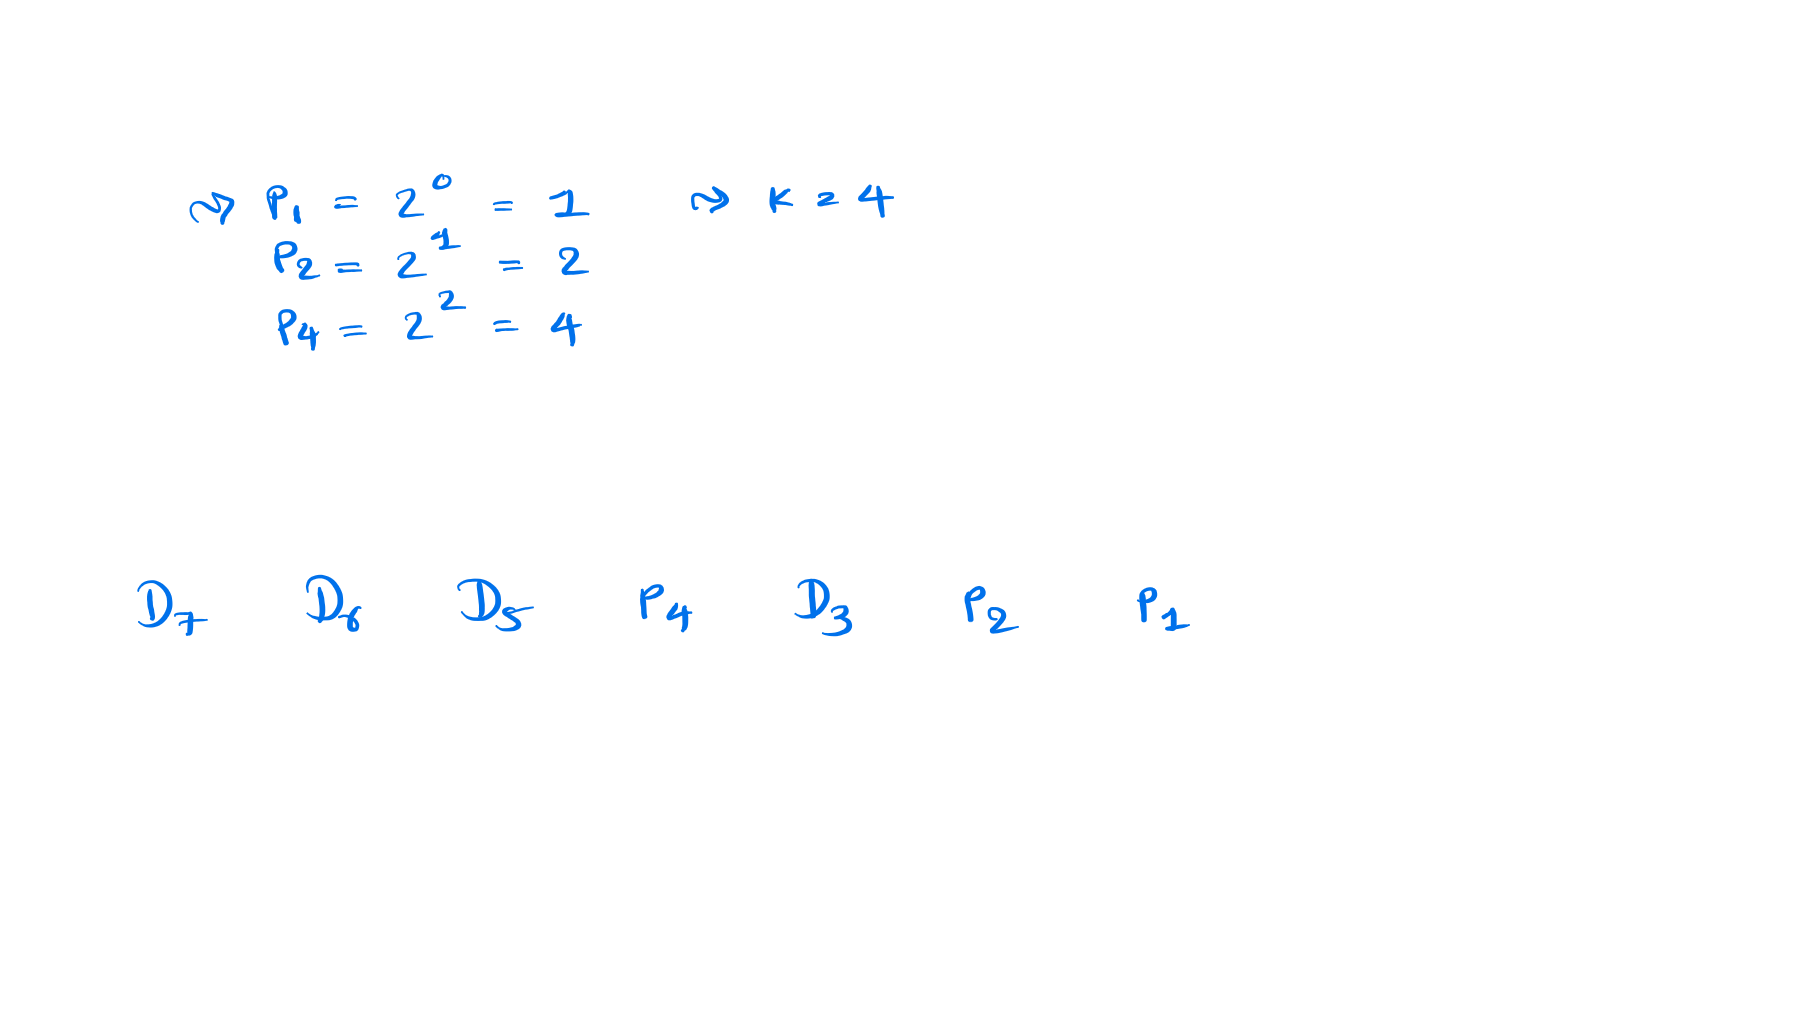 ⇝ P₁ = 2⁰ = 1 ⇝ K = 4
P₂ = 2¹ = 2
P₄ = 2² = 4
D₇ D₆ D₅ P₄ D₃ P₂ P₁